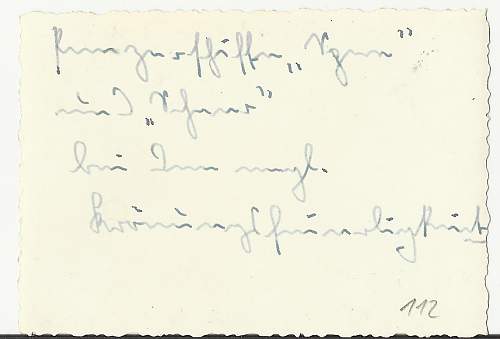 Panzerschiffe „Spee“
und „Scheer“
bei den engl.
Krönungsfeierligkeit
112